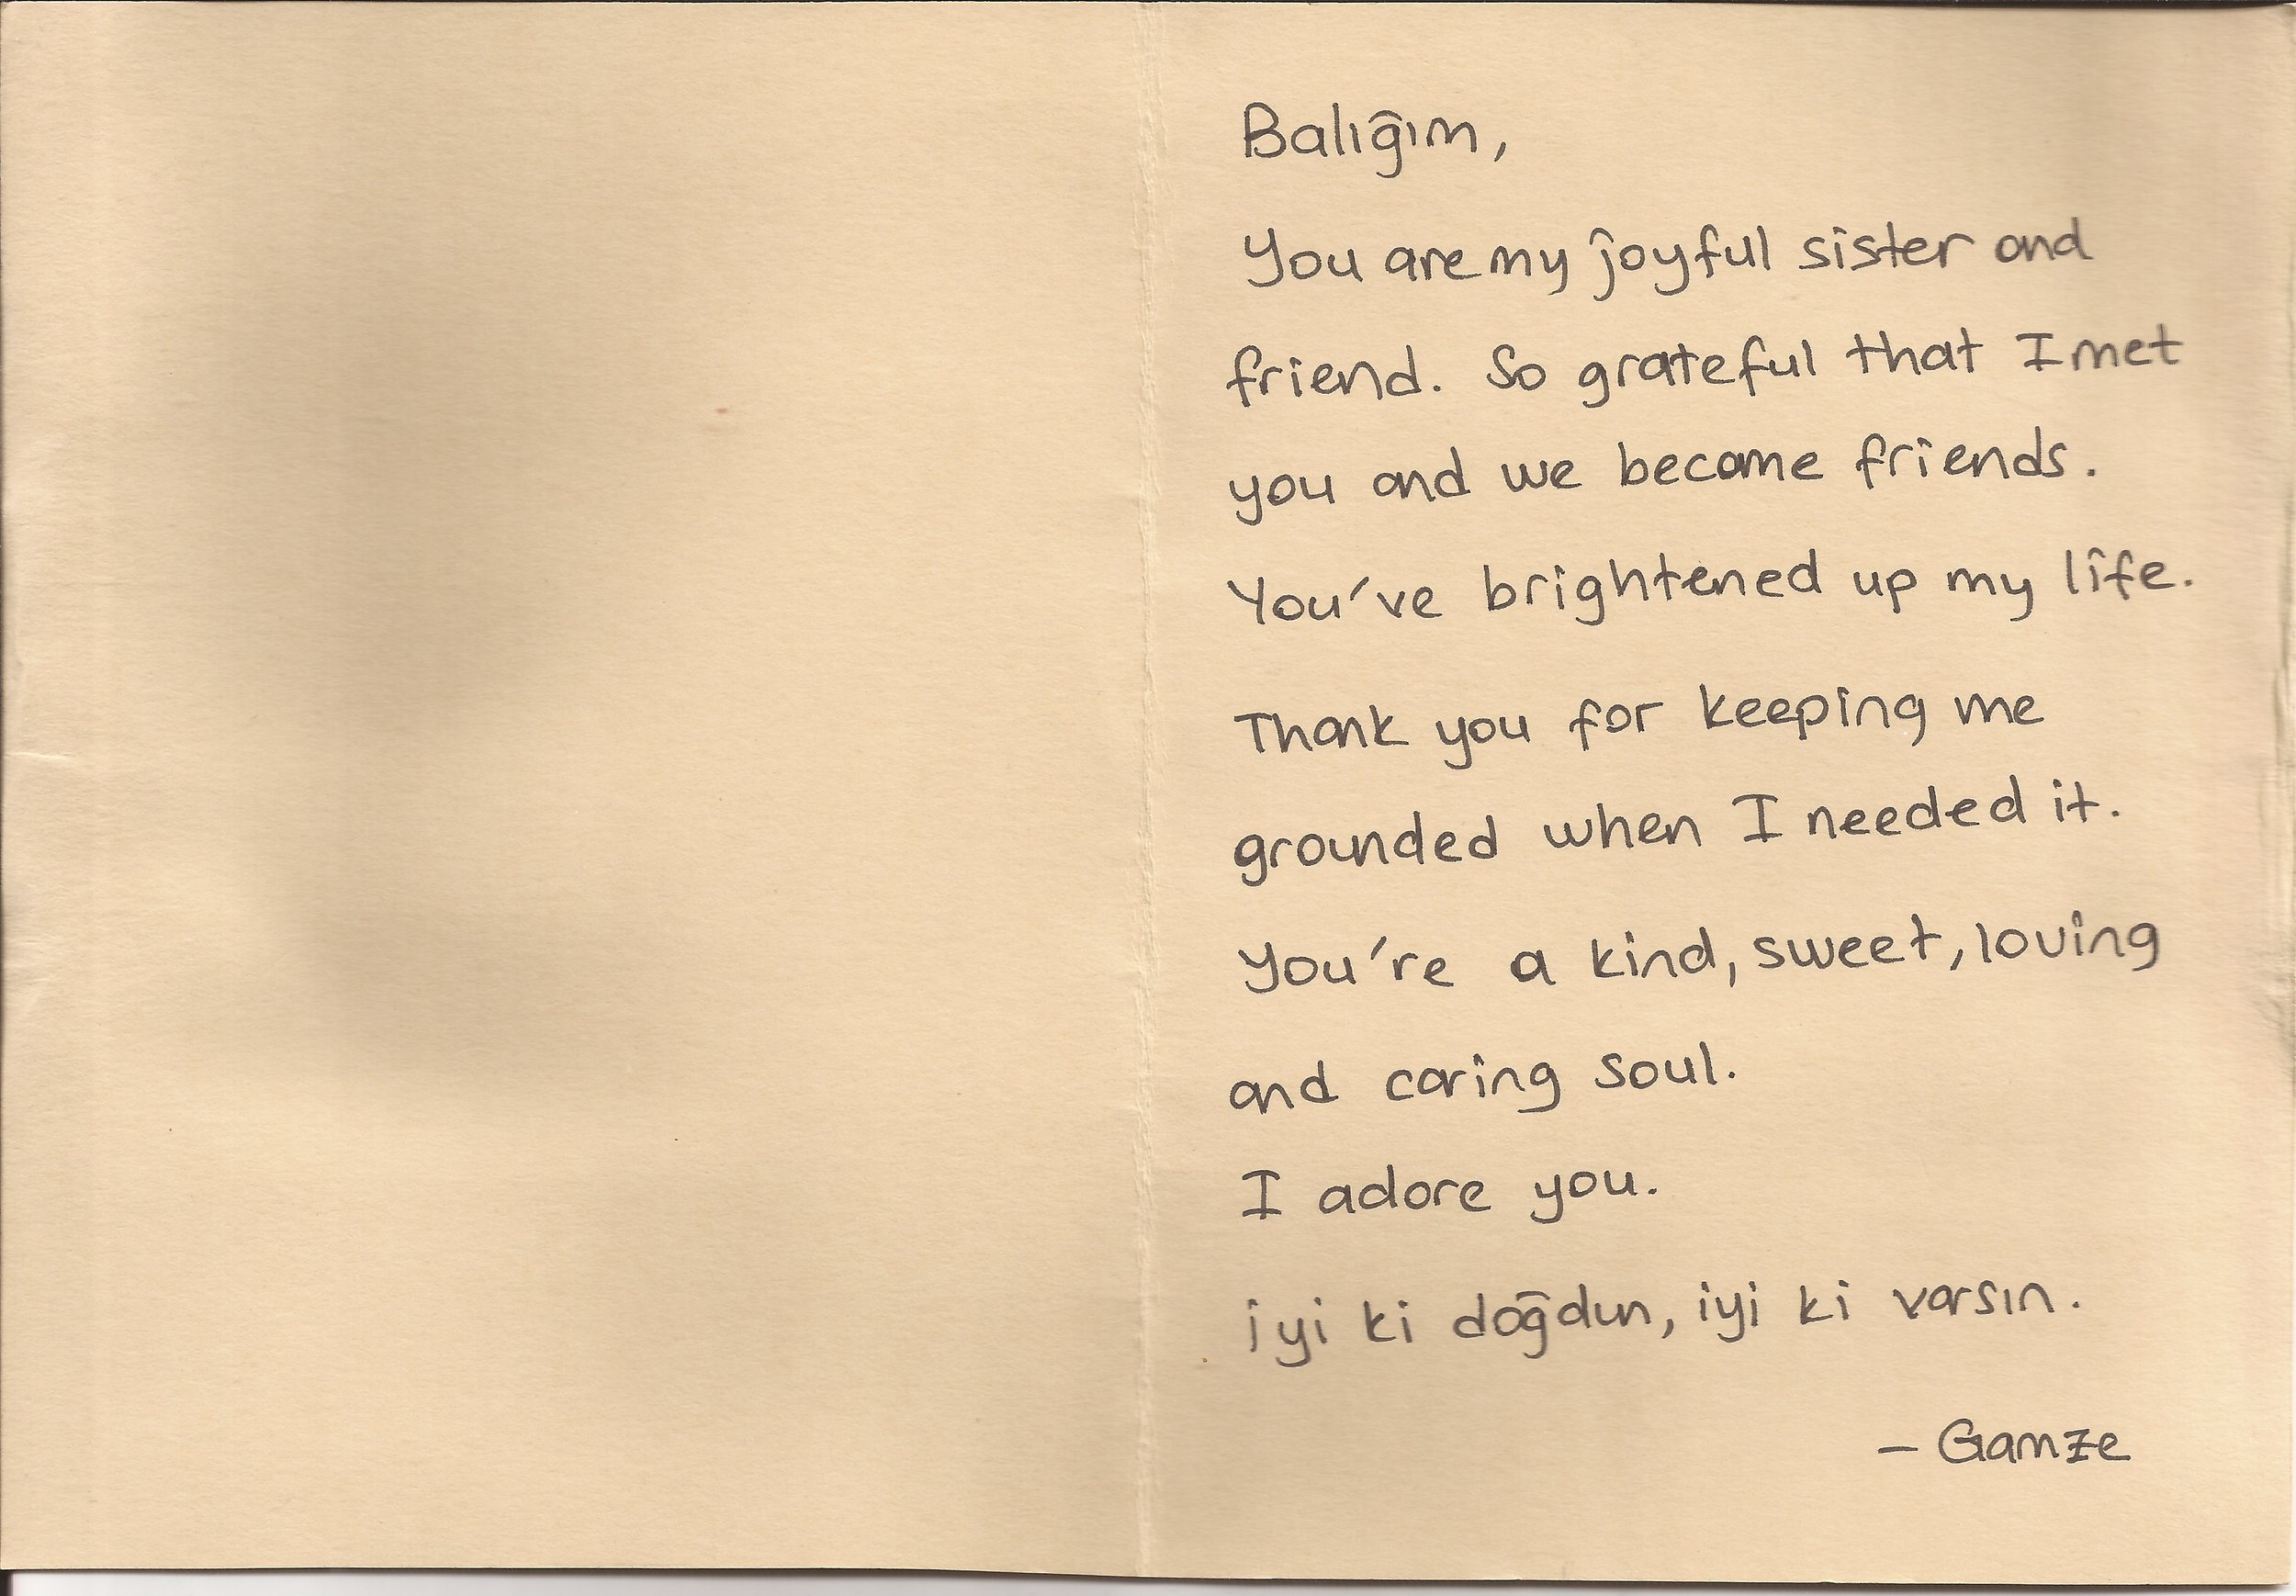 Balığım,
You are my joyful sister and
friend. So grateful that I met
you and we became friends.
You've brightened up my life.
Thank you for keeping me
grounded when I needed it.
You're a kind, sweet, loving
and caring soul.
I adore you.
iyi ki doğdun, iyi ki varsın.
– Gamze